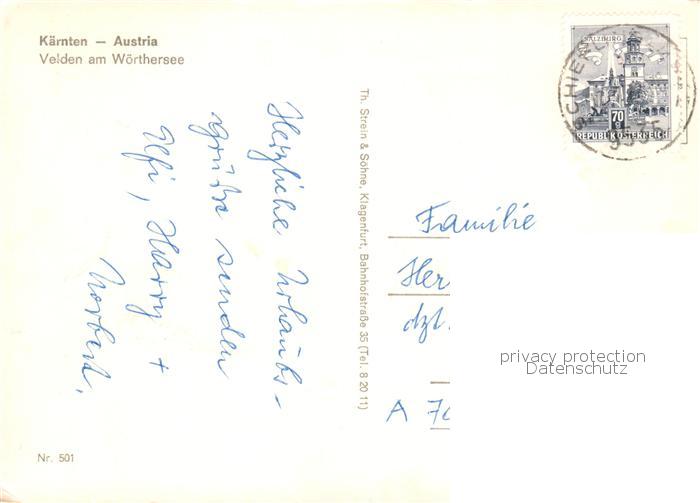 Kärnten — Austria
Velden am Wörthersee
SALZBURG
70
g
REPUBLIK ÖSTERREICH
Herzliche Urlaubs-
grüße senden
Elfi, Harry +
Norbert.
Th. Strein & Söhne, Klagenfurt, Bahnhofstraße 35 (Tel. 8 20 11)
Familie
Her
dzt.
A 70
privacy protection
Datenschutz
Nr. 501